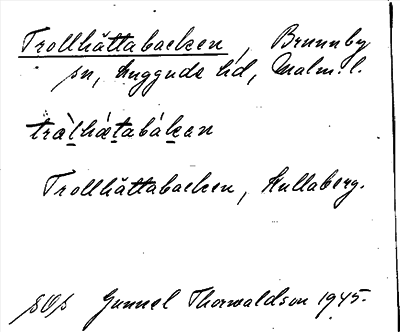 Trollhättabacken, Brunnby
sn, Luggude hd, Malm. l.
tràlhætabákan
Trollhättabacken, Kullaberg.
sOs Gunnel Thorwaldson 1945.